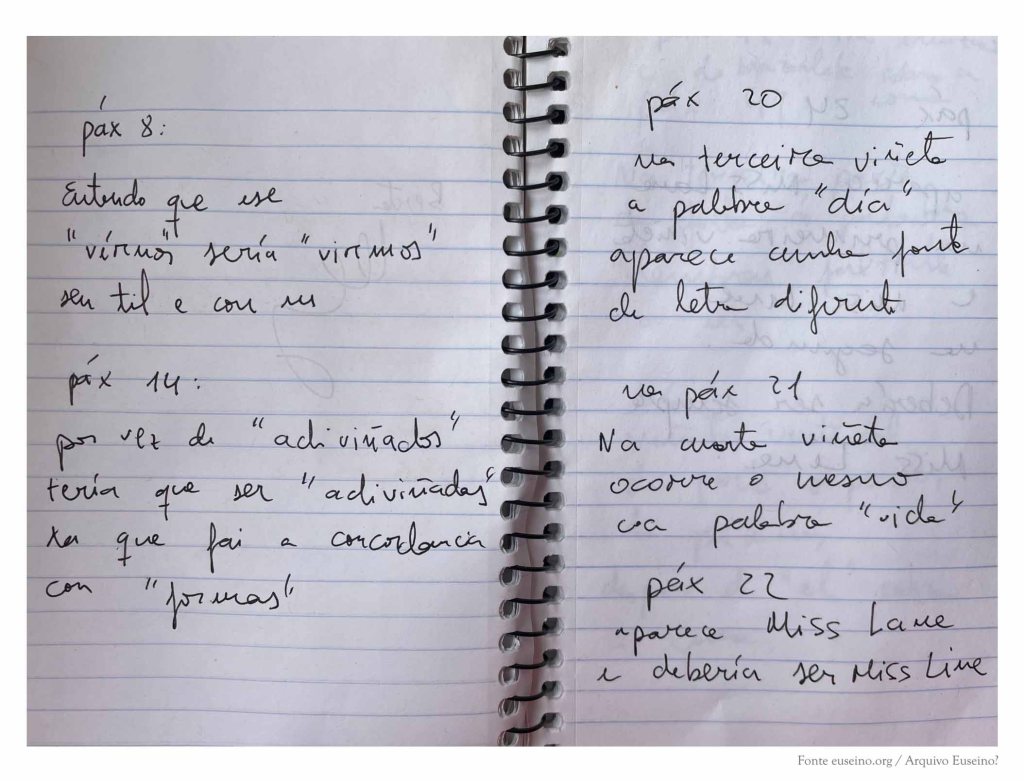 páx 8:
Entendo que ese
"vírmos" sería "virmos"
sen til e con m
páx 14:
por vez de "adiviñados"
tería que ser "adiviñadas"
xa que fai a concordancia
con "formas"
páx 20
na terceira viñeta
a palabra "día"
aparece cunha fonte
de letra diferente
na páx 21
Na cuarta viñeta
ocorre o mesmo
coa palabra "vida"
páx 22
aparece Miss Lane
e debería ser Miss Line
Fonte euseino.org / Arquivo Euseino?